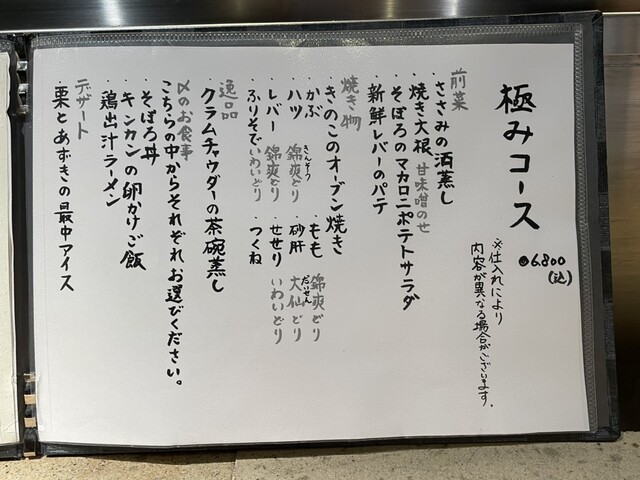 極みコース
●6.800
(込)
※仕入れにより
内容が異なる場合がございます。
前菜
・ささみの酒蒸し
・焼き大根 甘味噌のせ
・そぼろのマカロニポテトサラダ
・新鮮レバーのパテ
焼き物
・きのこのオーブン焼き
・かぶ ・もも 錦爽どり
・ハツ 錦爽どり きんそう ・砂肝 大仙どり だいせん
・レバー 錦爽どり ・せせり いわいどり
・ふりそで いわいどり ・つくね
逸品
・クラムチャウダーの茶碗蒸し
〆のお食事
こちらの中からそれぞれお選びください。
・そぼろ丼
・キンカンの卵かけご飯
・鶏出汁ラーメン
デザート
・栗とあずきの最中アイス